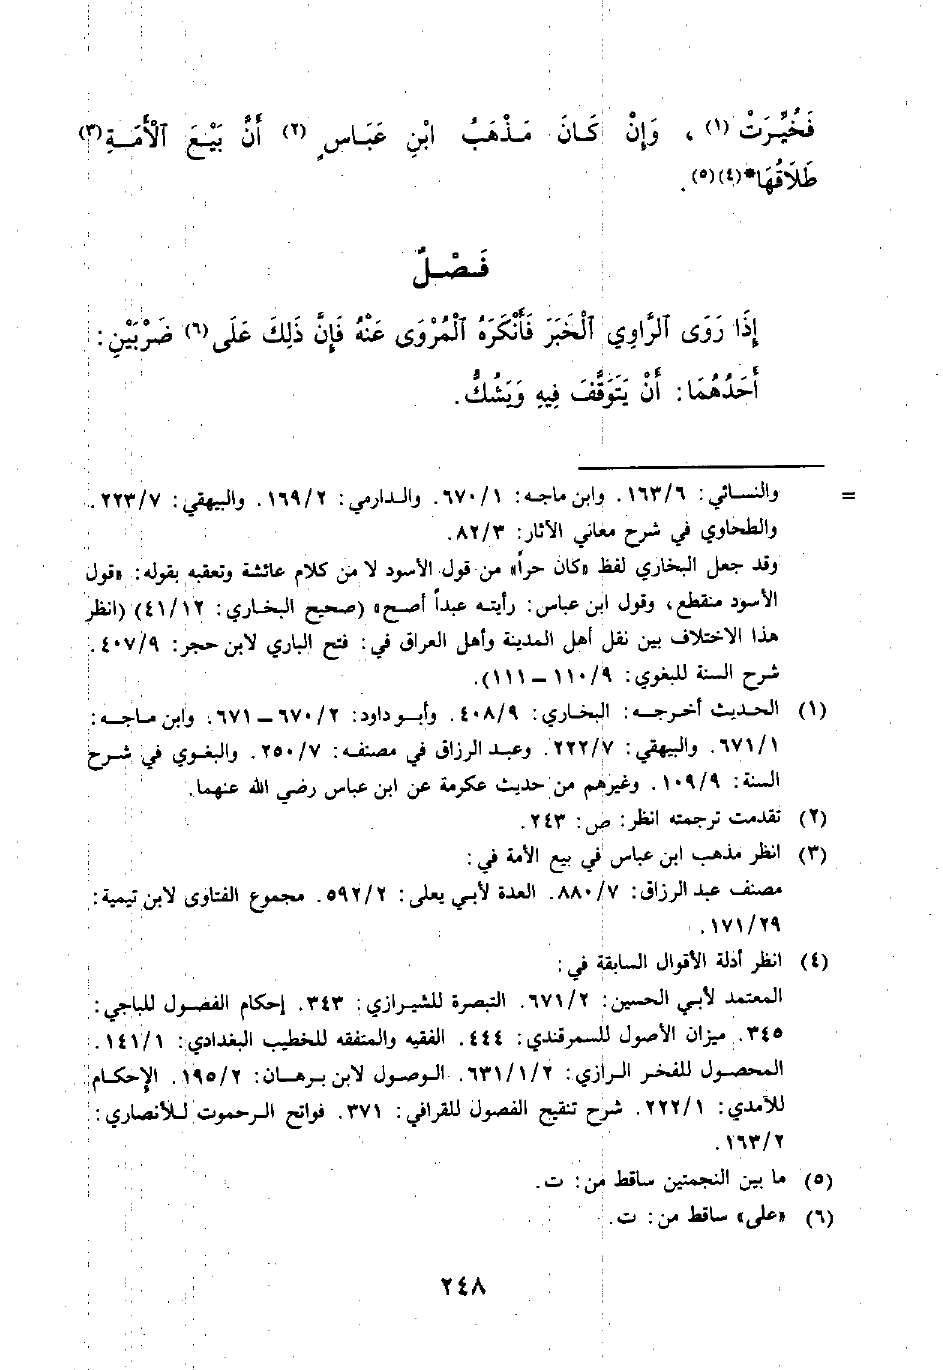 فَخُيِّرَتْ (١) ، وَإِنْ كَانَ مَذْهَبُ ابْنِ عَبَاسٍ (٢) أَنَّ بَيْعَ الْأَمَةِ (٣)
طَلَاقُهَا* (٤)(٥) .
فَصْلٌ
إِذَا رَوَى الرَّاوِي الْخَبَرَ فَأَنْكَرَهُ الْمُرْوَى عَنْهُ فَإِنَّ ذَلِكَ عَلَى (٦) ضَرْبَيْنِ :
أَحَدُهُمَا : أَنْ يَتَوَقَّفَ فِيهِ وَيَشُكُّ .
= والنسائي : ١٦٣/٦ . وابن ماجه : ٦٧٠/١ . والدارمي : ١٦٩/٢ . والبيهقي : ٢٢٣/٧ .
والطحاوي في شرح معاني الآثار : ٨٢/٣ .
وقد جعل البخاري لفظ «كان حراً» من قول الأسود لا من كلام عائشة وتعقبه بقوله : «قول
الأسود منقطع، وقول ابن عباس : رأيته عبداً أصح» (صحيح البخاري : ٤١/١٢) (انظر
هذا الاختلاف بين نقل أهل المدينة وأهل العراق في : فتح الباري لابن حجر : ٤٠٧/٩ .
شرح السنة للبغوي : ١١٠/٩ – ١١١).
(١) الحديث أخرجه : البخاري : ٤٠٨/٩ . وأبو داود : ٦٧٠/٢ – ٦٧١ . وابن ماجه :
٦٧١/١ . والبيهقي : ٢٢٢/٧ . وعبد الرزاق في مصنفه : ٢٥٠/٧ . والبغوي في شرح
السنة : ١٠٩/٩ . وغيرهم من حديث عكرمة عن ابن عباس رضي الله عنهما .
(٢) تقدمت ترجمته انظر : ص : ٢٤٣ .
(٣) انظر مذهب ابن عباس في بيع الأمة في :
مصنف عبد الرزاق : ٨٨٠/٧ . العدة لأبي يعلى : ٥٩٢/٢ . مجموع الفتاوى لابن تيمية :
١٧١/٢٩ .
(٤) انظر أدلة الأقوال السابقة في :
المعتمد لأبي الحسين : ٦٧١/٢ . التبصرة للشيرازي : ٣٤٣ . إحكام الفصول للباجي :
٣٤٥ . ميزان الأصول للسمرقندي : ٤٤٤ . الفقيه والمتفقه للخطيب البغدادي : ١٤١/١ .
المحصول للفخر الرازي : ٦٣١/١/٢ . الوصول لابن برهان : ١٩٥/٢ . الإحكام
للآمدي : ٢٢٢/١ . شرح تنقيح الفصول للقرافي : ٣٧١ . فواتح الرحموت للأنصاري :
١٦٣/٢ .
(٥) ما بين النجمتين ساقط من : ت .
(٦) «على» ساقط من : ت .
٢٤٨